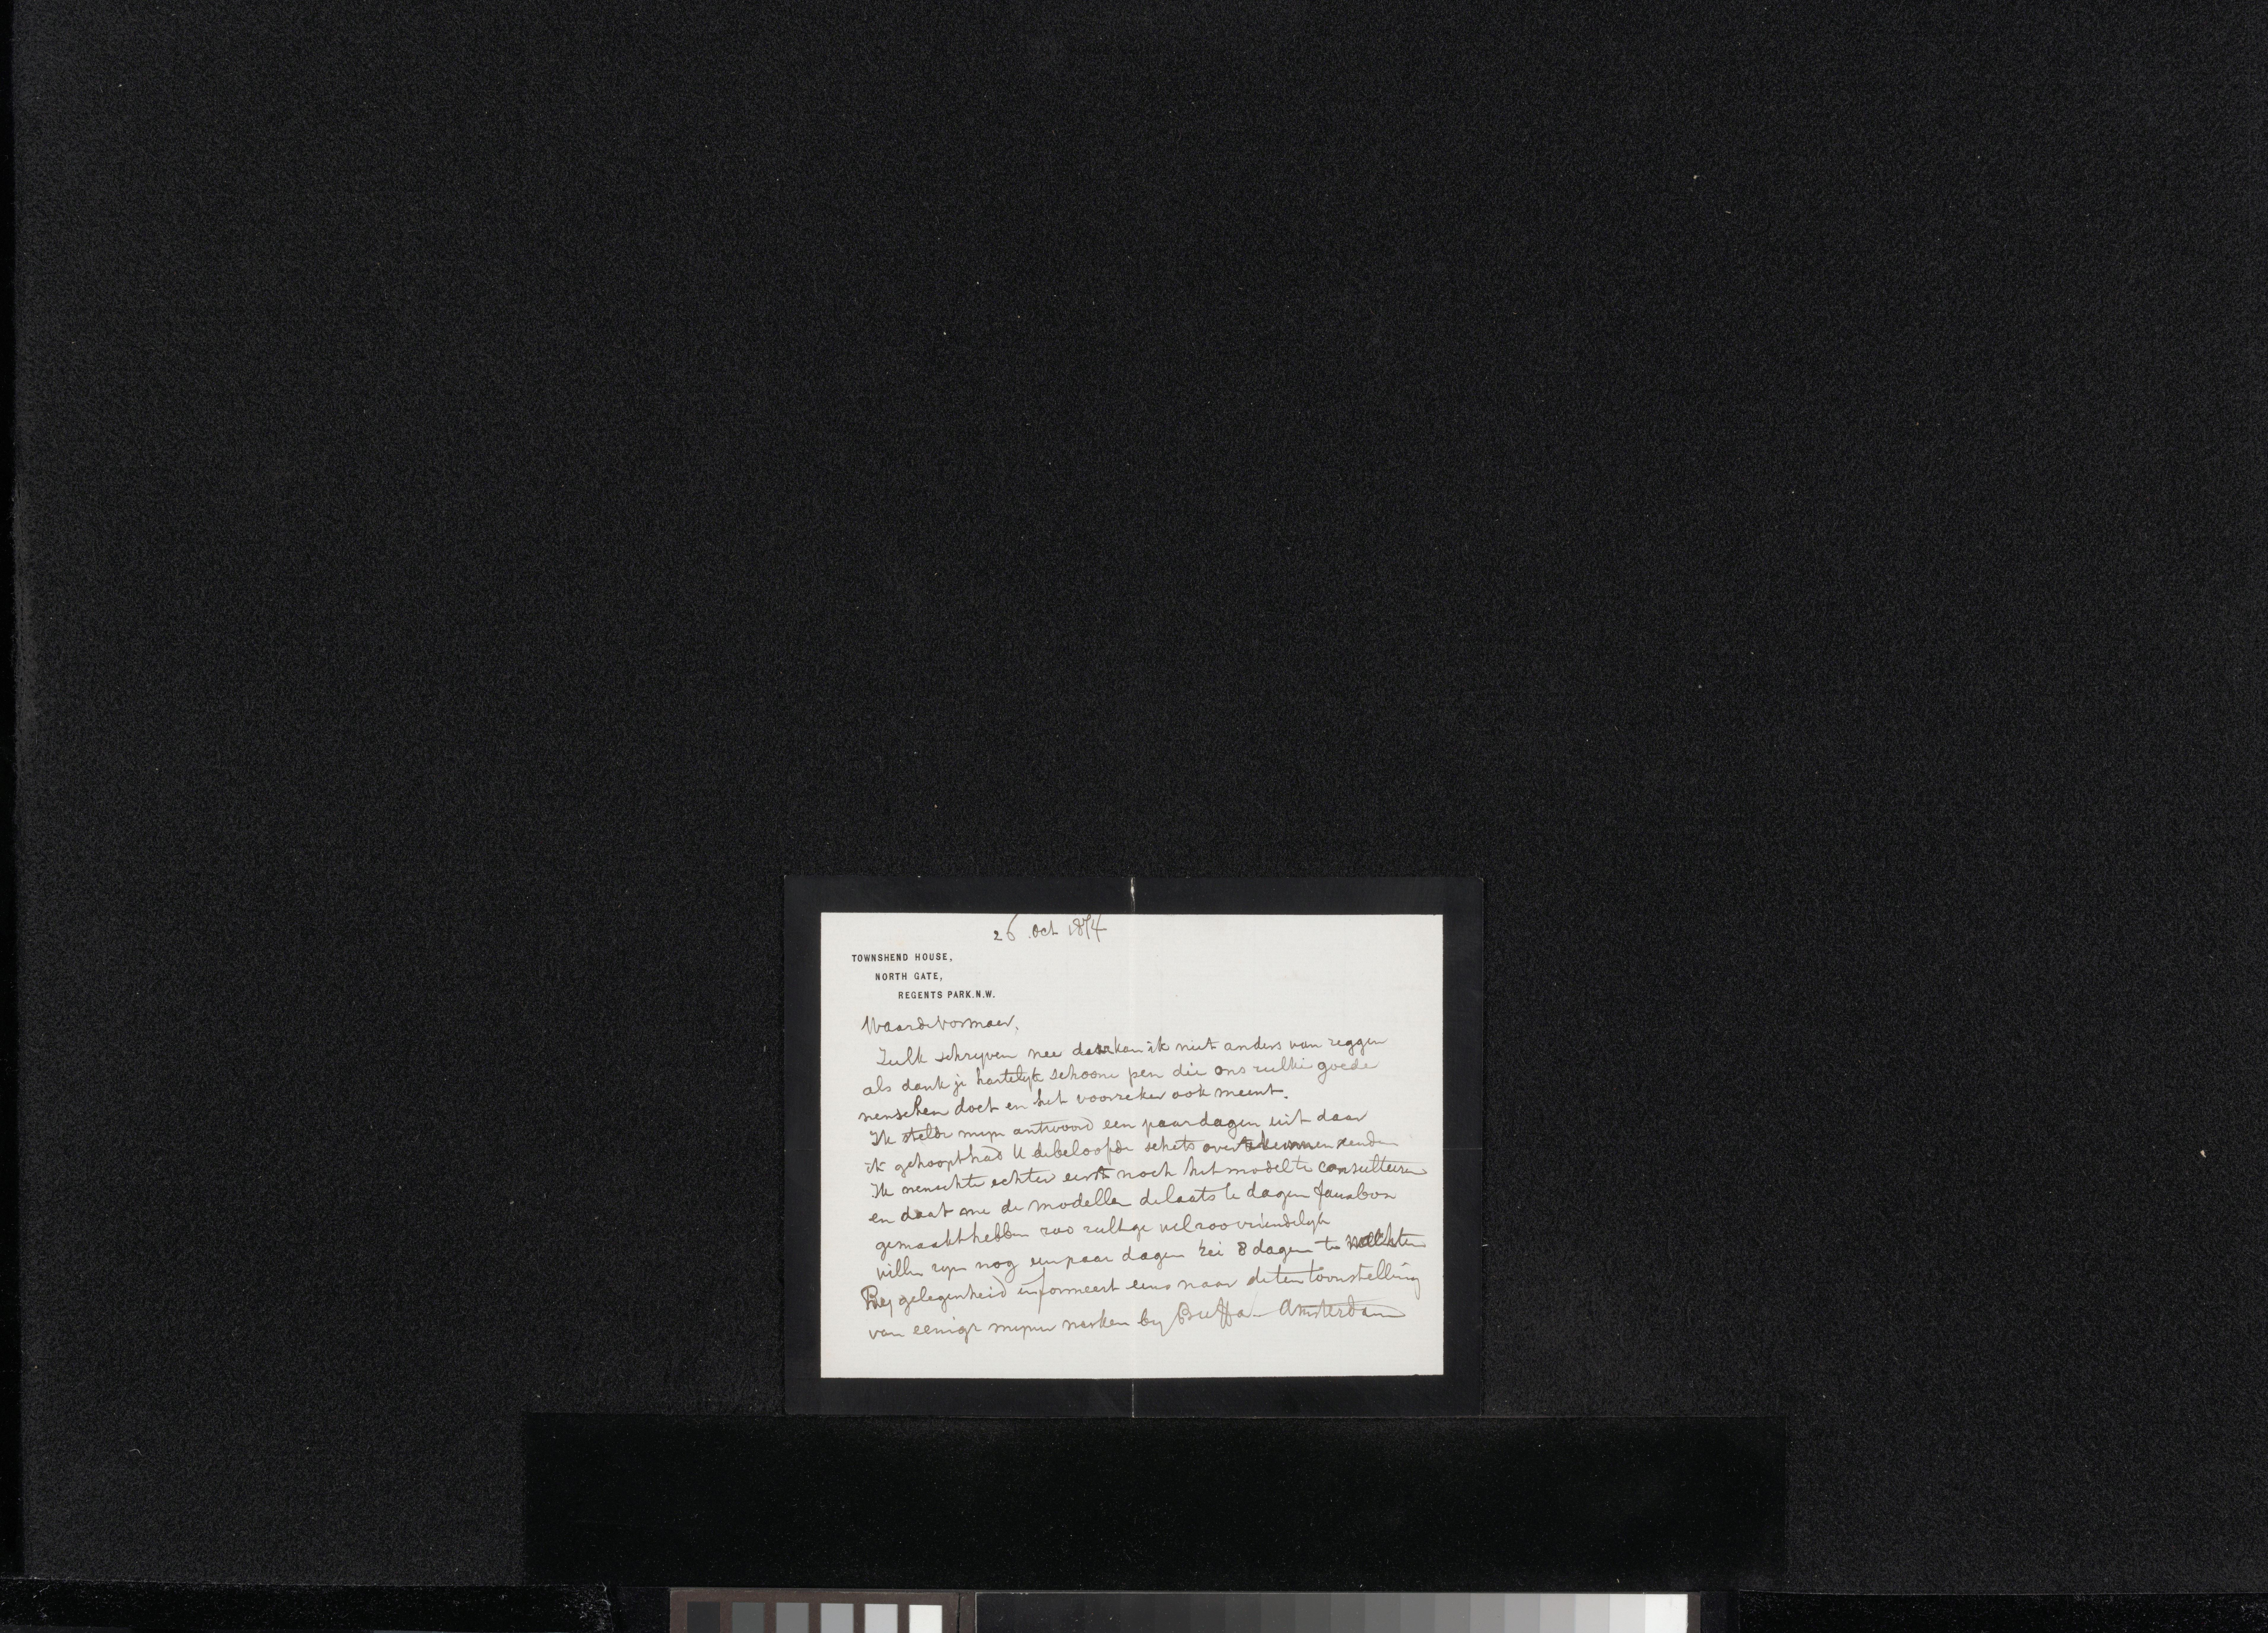 26 Oct 1874
TOWNSHEND HOUSE,
NORTH GATE,
REGENTS PARK.N.W.
Waarde Vosmaer,
Zulk schryven nee daarkan ik niet anders van zeggen
als dank je hartelyk schoone pen die ons zulke goede
menschen doet en het voorzeker ook meent.
Ik stelde myn antwoord een paar dagen uit daar
ik gehoopt had U de beloofde schets over te kunnen zenden
Ik wenschte echter eerst noch het model te consulteeren
en daat me de modellen de laatste dagen faux bon
gemaakt hebben zoo zult ge wel zoo vriendelyk
willen zyn nog een paar dagen zei 8 dagen te wachten
By gelegenheid informeert eens naar de tentoonstelling
van eenige myner werken by Buffa Amsterdam